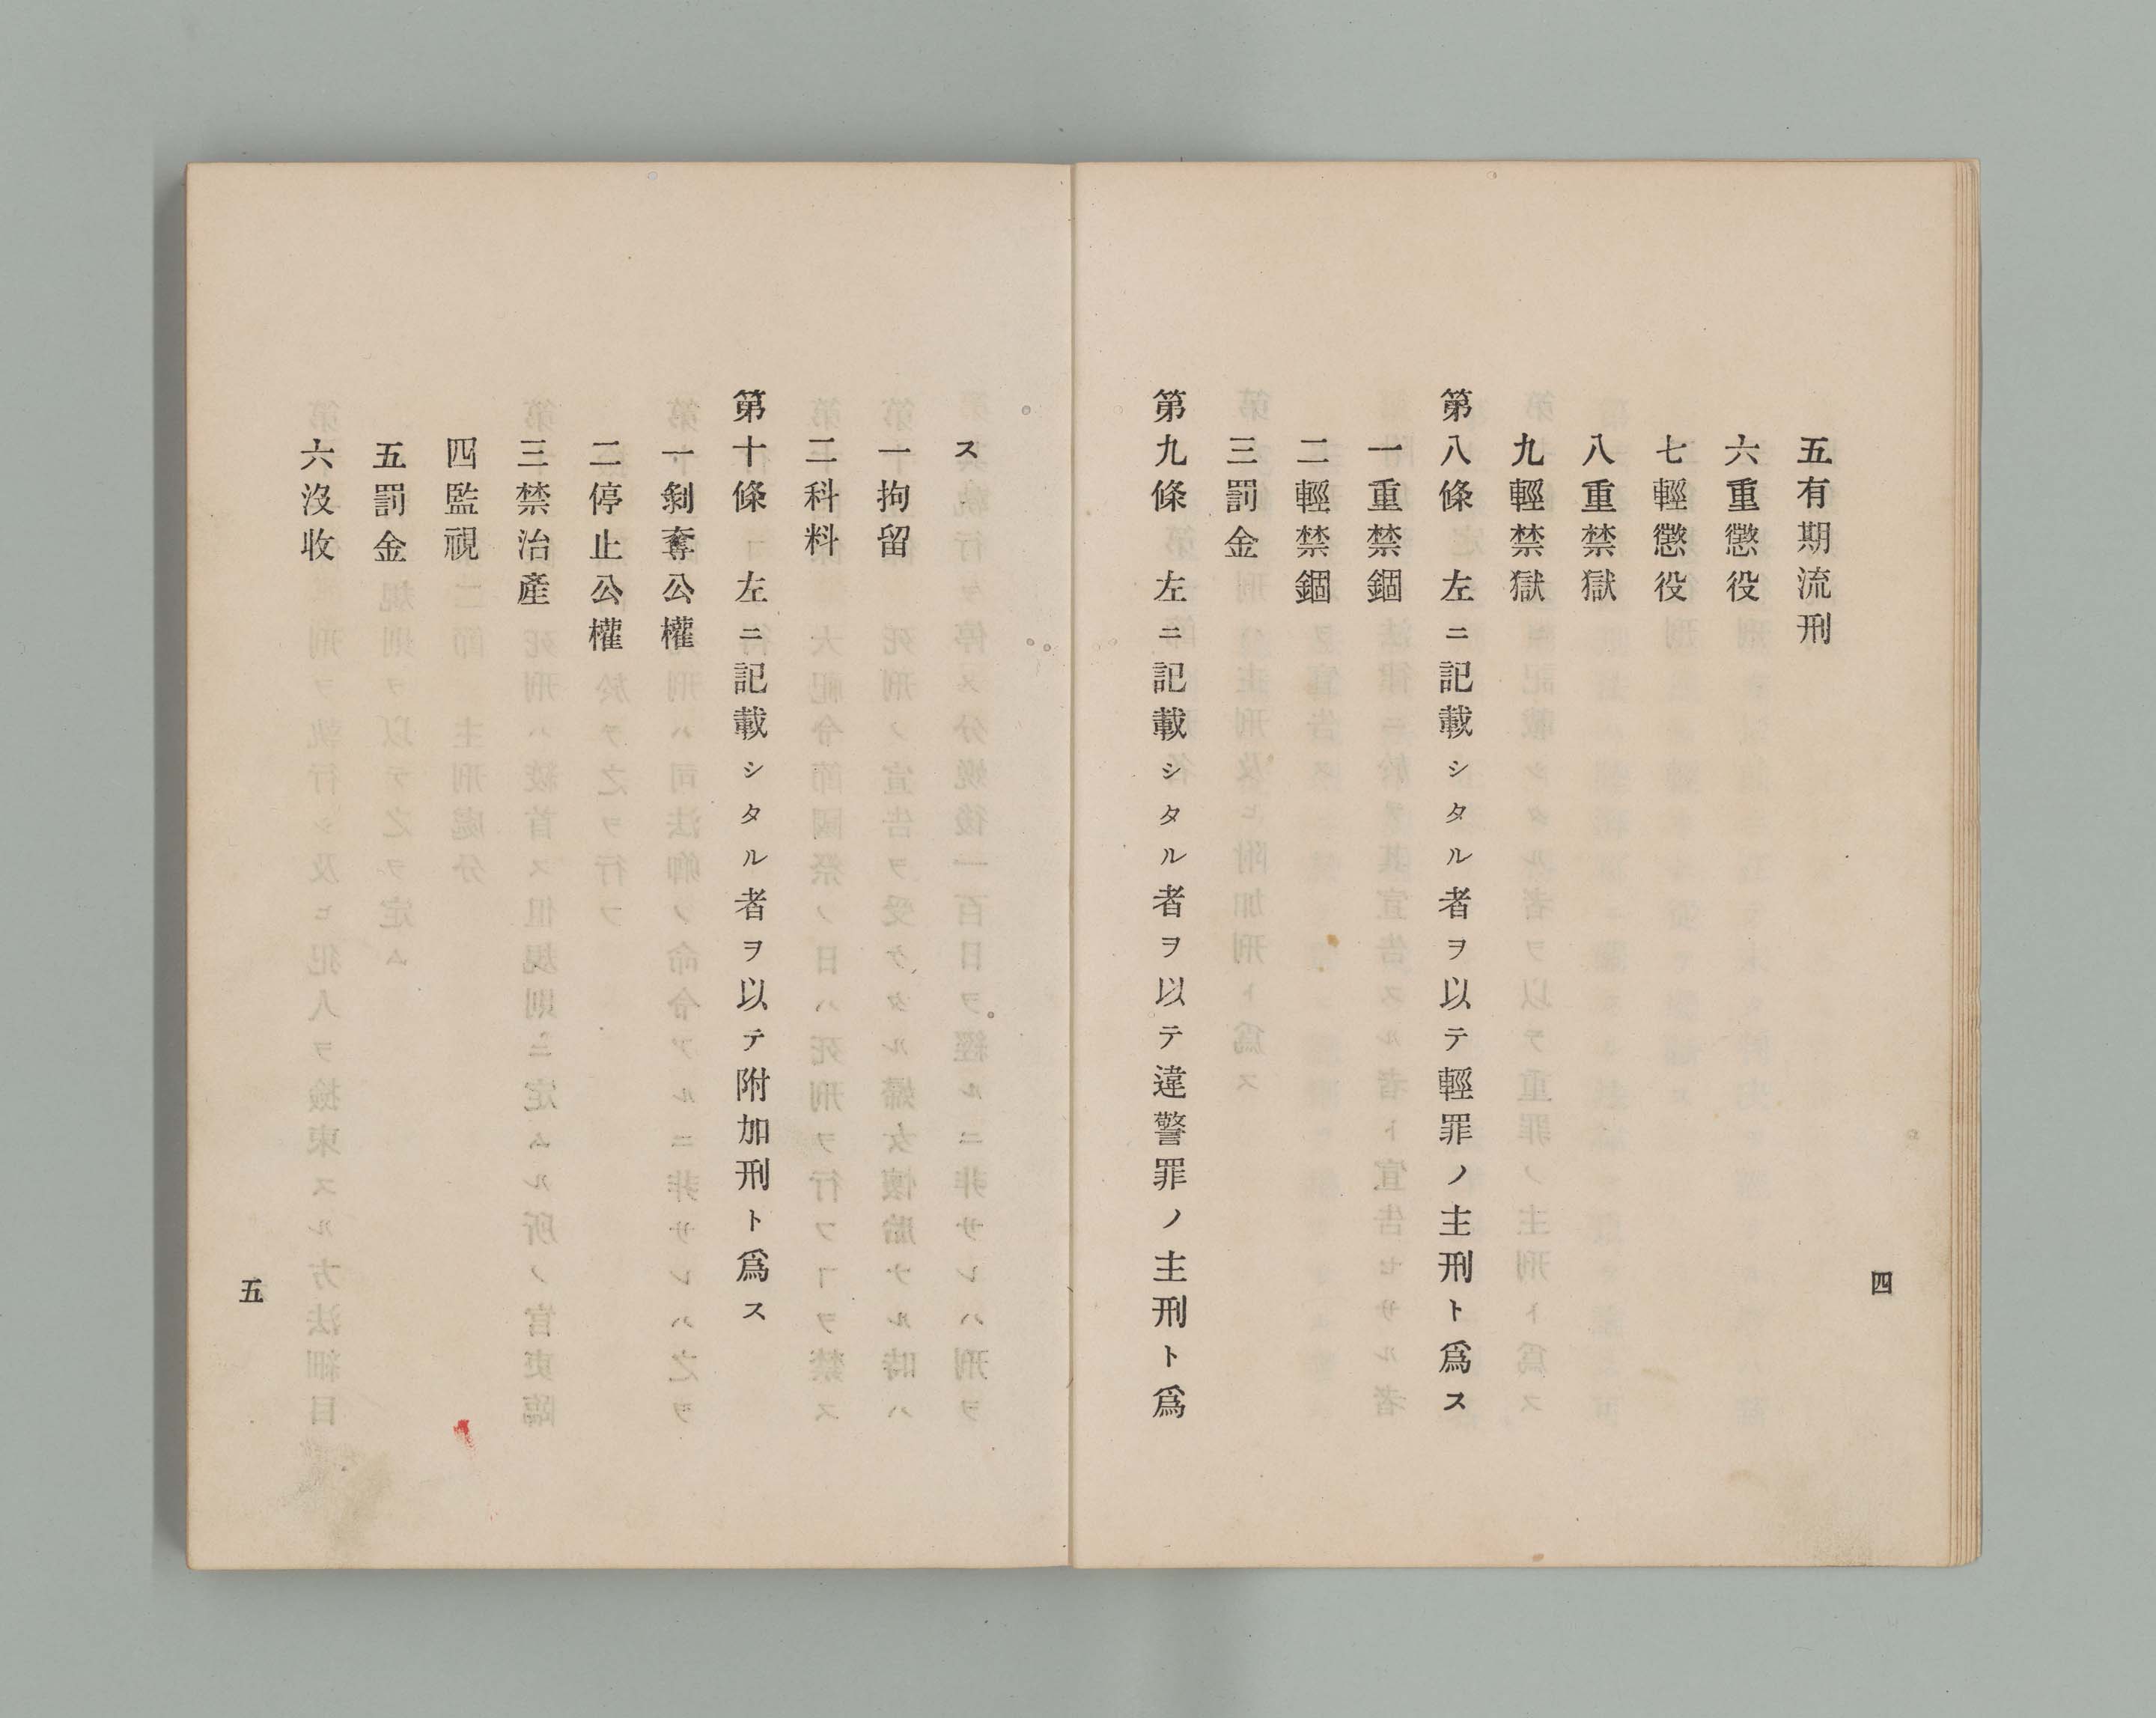 五有期流刑
六重懲役
七輕懲役
八重禁獄
九輕禁獄
第八條　左ニ記載シタル者ヲ以テ輕罪ノ主刑ト爲ス
一重禁錮
二輕禁錮
三罰金
第九條　左ニ記載シタル者ヲ以テ違警罪ノ主刑ト爲
四
ス
一拘留
二科料
第十條　左ニ記載シタル者ヲ以テ附加刑ト爲ス
一剝奪公權
二停止公權
三禁治產
四監視
五罰金
六沒收
五